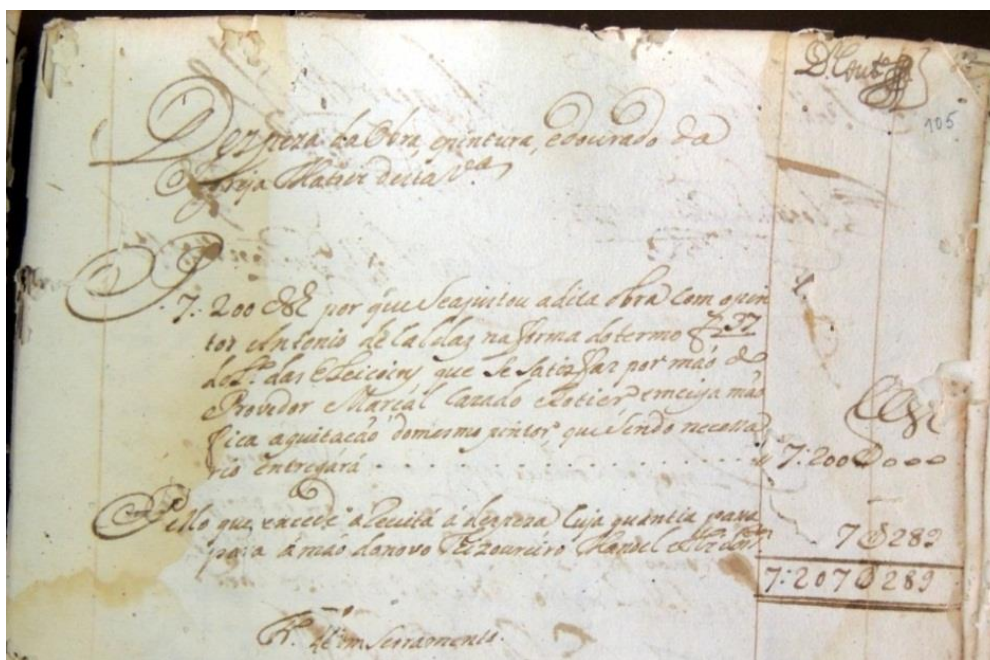 D. Cout.º
105
Despeza da Obra, epintura, edourado da
Igreja Matriz desta V.ª
P. 7:200 por que Seajustou adita obra Com opin
tor Antonio de Caldas na forma dotermo f 37
do L.º das Eleicoins que Se Satisfaz por mão do
Provedor Marcál Cazado Rotier emcuja mão
fica aquitacão domesmo pintor, que Sendo necessa
rio entregará . . . . . . . . . . 7:200 000
Pello que excede areceita á despeza Cuja quantia passa
para á mão donovo Thizoureiro Manoel 7 289
7:207 289
em Serramento.